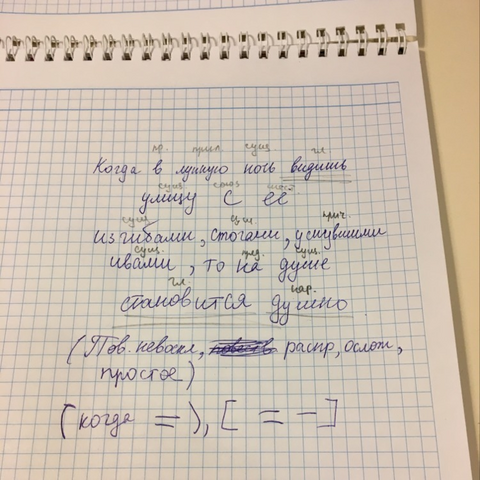 пр. прил. сущ гл
Когда в лунную ночь видишь
сущ союз мест
улицу с её
сущ сущ. прич.
изгибами, стогами, уснувшими
сущ. пред. сущ.
ивами, то на душе
гл нар.
становится душно
(Пов. невоскл, распр, ослож,
простое)
(когда =), [ = – ]